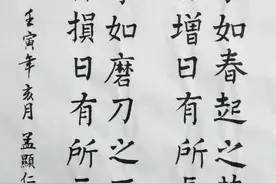 如春起之
增日有所
如磨刀之
損日有所
壬寅年亥月 孟顯仁